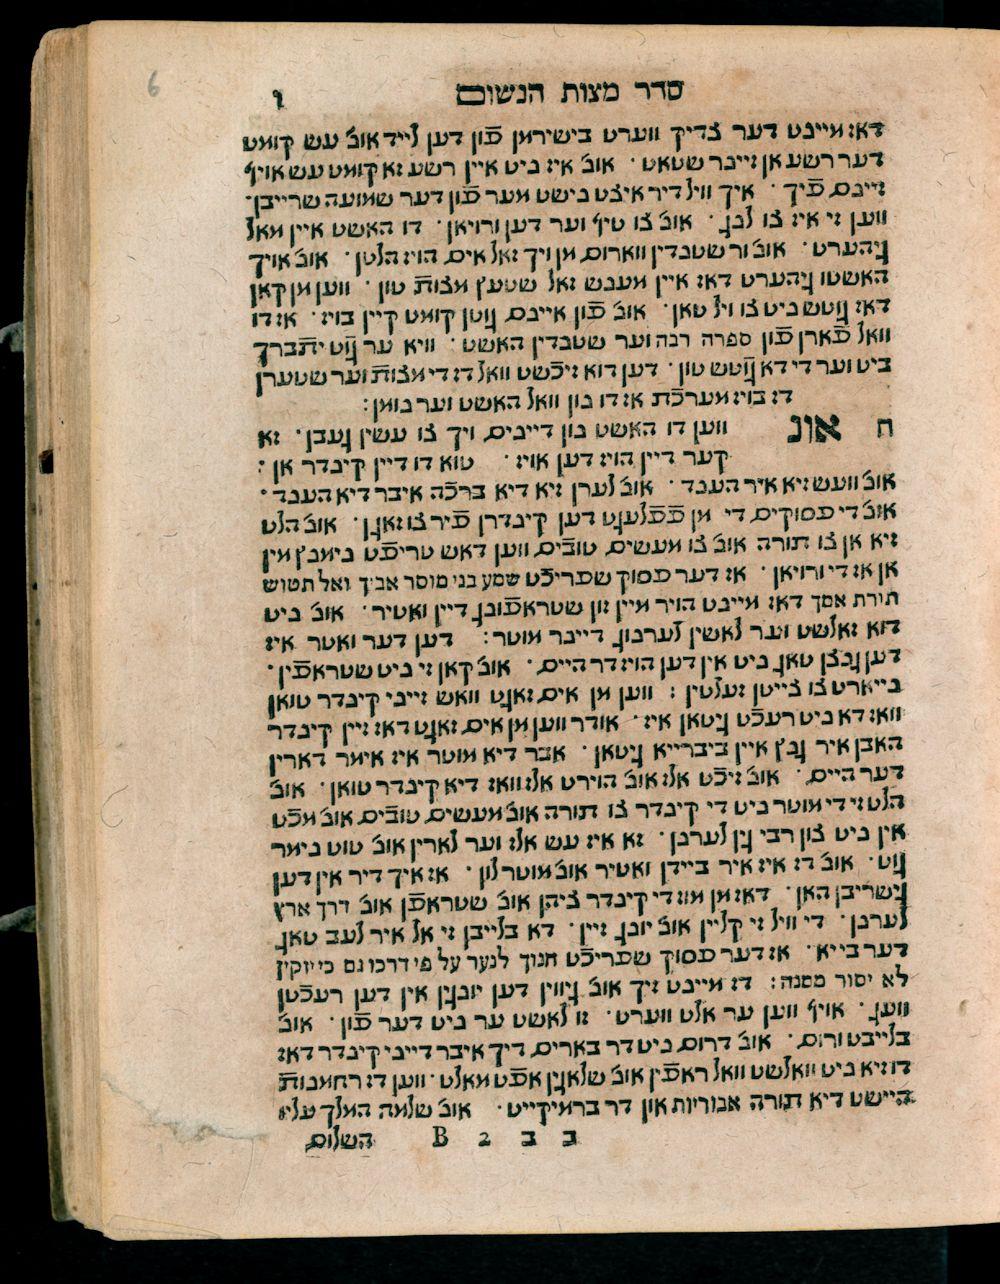 6
סדר מצות הנשים
ו
דאז מיינט דער צדיק ווערט בישירמן פֿון דען לייד אונ׳ עש קומט
דער רשע אן זיינר שטאט · אונ׳ איז ניט איין רשע זא קומט עש אויף
זיינס פֿיך · איך וויל דיר איצט נישט מער פֿון דער שמועה שרייבן ·
ווען זי איז צו לנג · אונ׳ צו טיף ווער דען ורויאן · דו האשט איין מאל
גיהערט · אונ׳ ור שטנדין ווארום מן זיך זאל אים הויז הלטן · אונ׳ אויך
האשטו גיהערט דאז איין מענש זאל שטעץ מצות טון · ווען מן קאן
דאז גוטש ניט צו ויל טאן · אונ׳ פֿון איינם גוטן קומט קיין בויז · אז דו
וואל פֿארן פֿון ספרה רבה וער שטנדין האשט · וויא ער גוט יתברך
ביט וער די דא גוטש טון · דען דוא זיכֿשט וואל דז די מצות וער שטערן
דז בויז מערכֿת אז דו נון וואל האשט וער נומן :
ח אונ ווען דו האשט נון דיינים זיך צו עשין געבן · זא
קער דיין הויז דען אויז · טוא דו דיין קינדר אן :
אונ׳ וועש זיא איר הענד · אונ׳ לערן זיא דיא ברכה איבר דיא הענד ·
אונ׳ די פסוקים די מן פֿפֿלעגט דען קינדרן פֿיר צו זאגן · אונ׳ הלט
זיא אן צו תורה אונ׳ צו מעשים טובים ווען דאש טריפֿט נימנץ מין
אן אז די ורויאן · אז דער פסוק שפריכֿט שמע בני מוסר אביך ואל תטוש
תורת אמך דאז מיינט הויר מיין זון שטראפֿונג דיין ואטיר · אונ׳ ניט
דוא זאלשט וער לאשין לערנונג דיינר מוטר : דען דער ואטר איז
דען גנצן טאג ניט אין דען הויז דר היים · אונ׳ קאן זי ניט שטראפֿין ·
נייארט צו צייטן זעלטין : ווען מן אים זאגט וואש זייני קינדר טואן
וואז דא ניט רעכֿט גיטאן איז · אודר ווען מן אים זאגט דאז זיין קינדר
האבן איר גנץ איין ביברייא גיטאן · אבר דיא מוטר איז אימר דארין
דער היים · אונ׳ זיכֿט אלז אונ׳ הוירט אלז וואז דיא קינדר טואן · אונ׳
הלט זי די מוטר ניט די קינדר צו תורה אונ׳ מעשים טובים אונ׳ מכֿט
אין ניט צון רבי גין לערנן · זא איז עש אלז וער לארין אונ׳ טוט נימר
גוט · אונ׳ דז איז איר ביידן ואטיר אונ׳ מוטר לון · אז איך דיר אין דען
גישריבן האן · דאז מן מוז די קינדר ציהן אונ׳ שטראפֿן אונ׳ דרך ארץ
לערנן · די וויל זי קליין אונ׳ יונג זיין · דא בלייבן זי אל איר לעב טאג
דער בייא · אז דער פסוק שפריכֿט חנוך לנער על פי דרכו גם כי יזקין
לא יסור ממנה : דז מיינט זיך אונ׳ גיווין דען יונגין אין דען רעכֿטן
ווענ · אויף ווען ער אלט ווערט · זו לאשט ער ניט דער פֿון · אונ׳
בלייבט ורום · אונ׳ דרום ניט דר בארים דיך איבר דייני קינדר דאז
דו זיא ניט וואלשט וואל ראפֿין אונ׳ שלאגין אפֿט מאלט · ווען דז רחמנות
היישט דיא תורה אכזריות און דר ברמיקייט · אונ׳ שלמה המלך עליו
ב ב ב 2 B
השלום